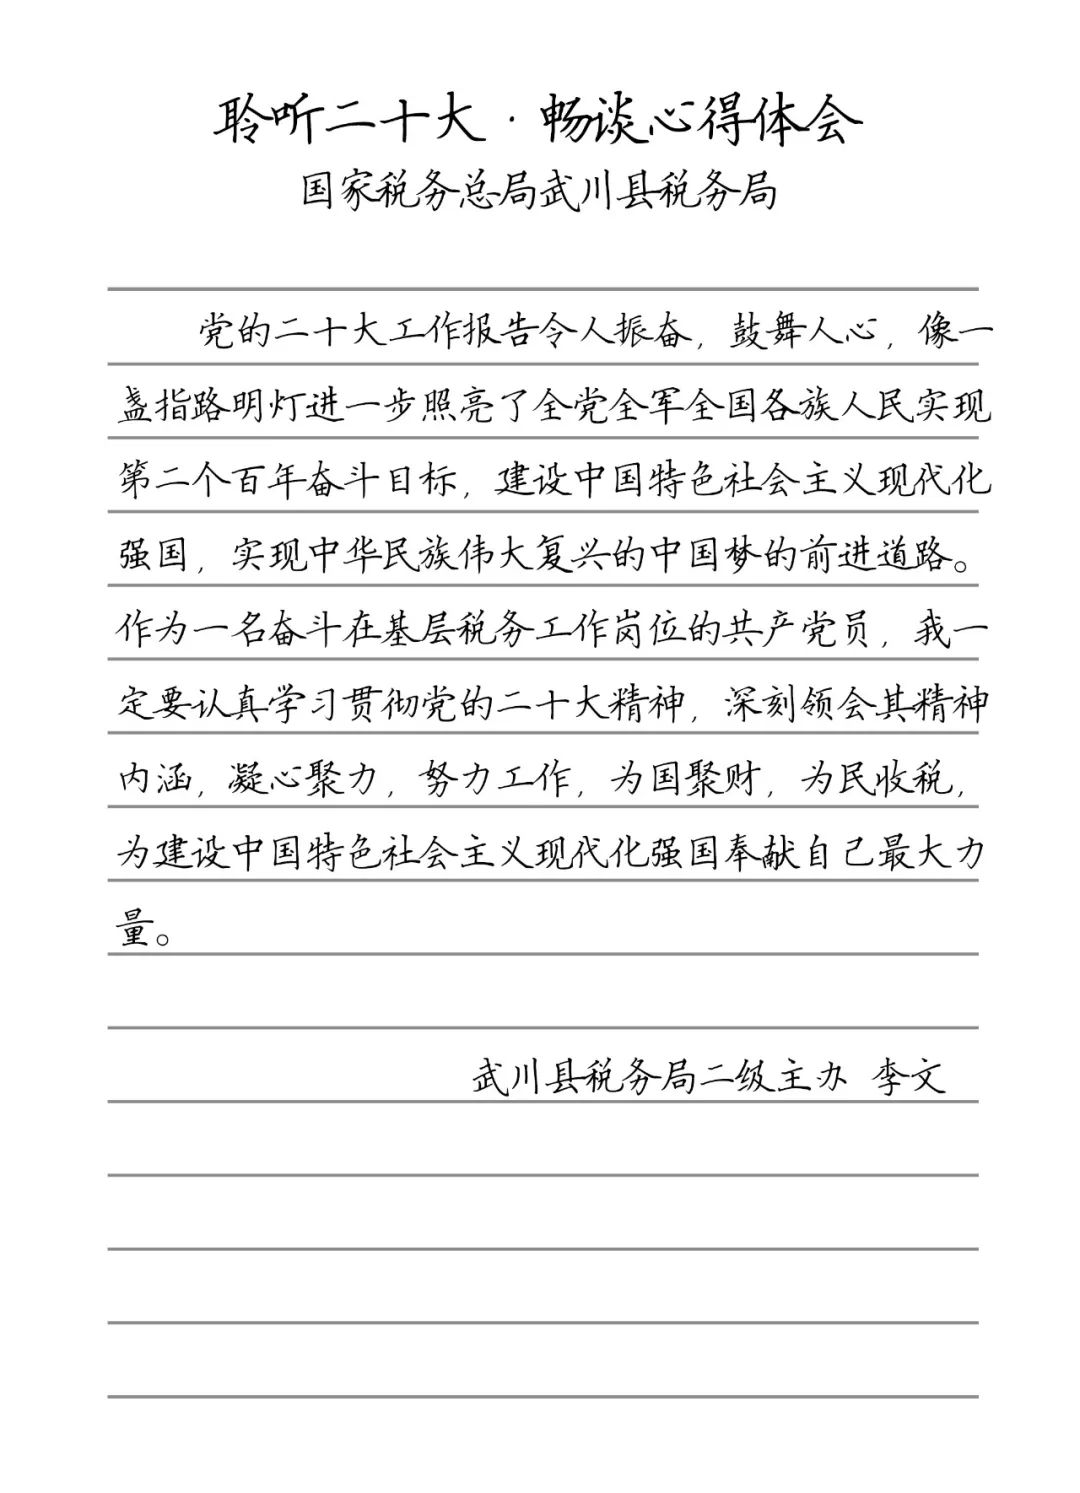 聆听二十大·畅谈心得体会
国家税务总局武川县税务局
党的二十大工作报告令人振奋，鼓舞人心，像一
盏指路明灯进一步照亮了全党全军全国各族人民实现
第二个百年奋斗目标，建设中国特色社会主义现代化
强国，实现中华民族伟大复兴的中国梦的前进道路。
作为一名奋斗在基层税务工作岗位的共产党员，我一
定要认真学习贯彻党的二十大精神，深刻领会其精神
内涵，凝心聚力，努力工作，为国聚财，为民收税，
为建设中国特色社会主义现代化强国奉献自己最大力
量。
武川县税务局二级主办 李文